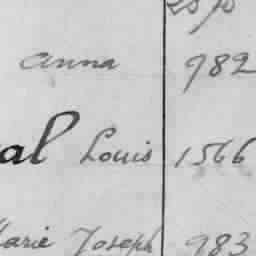 Anna 982
al Louis 1566
Marie Joseph 983